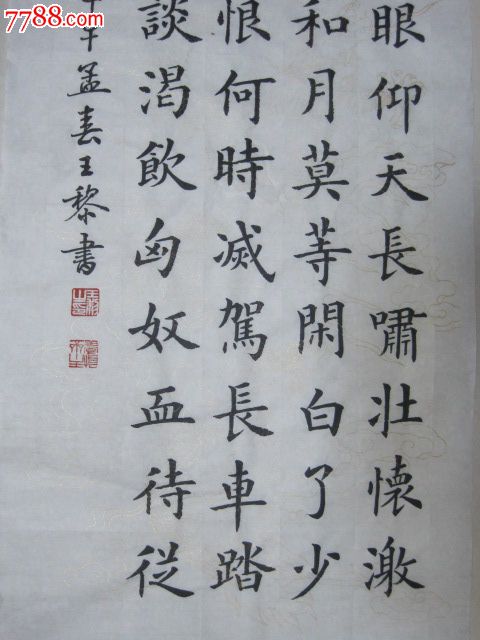 7788.com
眼仰天長嘯壯懷激
和月莫等閑白了少
恨何時滅駕長車踏
談渴飲匈奴血待從
午孟春王黎書